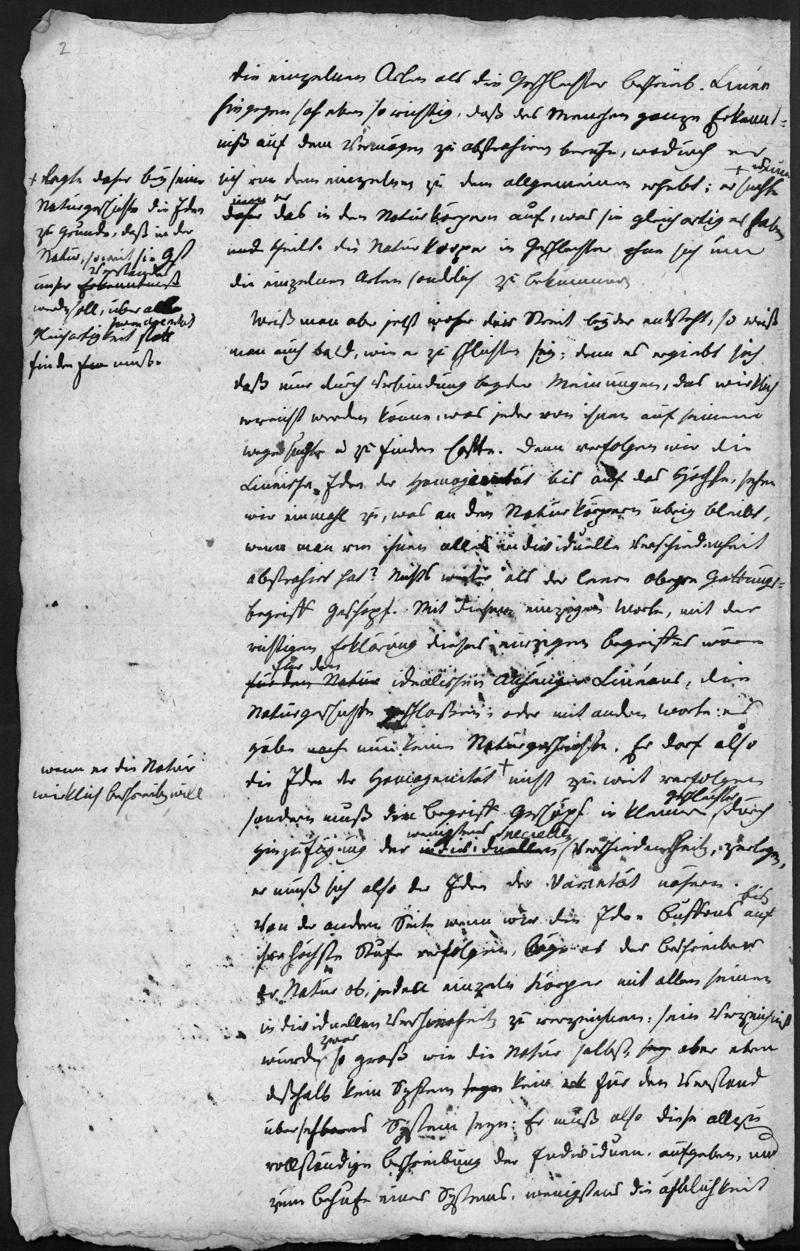 2
die einzelnen Arten als die Geschlechter beschrieb. Linée
hingegen sah eben so richtig, daß des Menschen ganze Erkennt-
niß auf dem Vermögen zu abstrahiren beruhe, wodurch er
sich von dem einzelnen zu dem allgemeinen erhebt; er suchte
daher das in den Naturkörpern auf, was sie gleichartiges haben
und theilt die Naturkörper in Geschlechter ohne sich um
die einzelnen Arten sonderlich zu bekümmern
+ legte daher bey seiner
Naturgeschichte die Idee
zu Grunde, daß in der
Natur, soweit sie Gst
unser Verstandes Erkenntniß
werden soll, über all
Gleichartigkeit Homogenität statt
finden muß.
Weiß man aber jetzt woher der Streit beyder entsteht, so weiß
man auch bald, wie er zu schlichten sey; denn es ergiebt sich
daß nur durch Verbindung beyder Meinungen, das wirklich
erreicht werden könne, was jeder von ihnen auf seinem
Wege suchte u zu finden hoffte. Denn verfolgen wir die
Linéische Idee der Homogenität bis auf das Höchste, sehen
wir einmahl zu, was an den Naturkörpern übrig bleibt,
wenn man von ihnen alle individuelle Verschiedenheit
abstrahirt hat? Nichts weiter als der leere obere Gattungs-
begriff Geschöpf. Mit diesem einzigen Worte, mit der
richtigen Erklärung dieses einzigen Begriffes wäre
für den
für den Natur idealischen Anhänger Linéens, die
Naturgeschichte geschlossen; oder mit andern Worten: es
gäbe nach nun keine Naturgeschichte. Er darf also
die Idee der Homogenität + nicht zu weit verfolgen
wenn er die Natur
wirklich beschreiben will
sondern muß den Begriff Geschöpf in kleinere Geschlechter, durch
Hinzufügung der wenigstens speciellen individuellen Verschiedenheit, zerlegen,
er muß sich also der Idee der Varietät nähern.
Von der andern Seite wenn wir die Idee Buffons bis auf
ihre höchste Stufe verfolgen, läge es dem Beschreiber
der Natur ob, jeden einzeln Körper mit allen seinen
individuellen Verschiedenheiten zu verzeichnen: sein Verzeichniß
würde zwar so groß wie die Natur selbst seyn aber eben
deßhalb kein System seyn kein für den Verstand
übersehbares System seyn: Er muß also diese allzu
vollständige Beschreibung der Individuen, aufgeben, und
zum Behufe eines Systems, wenigstens die Ähnlichkeit